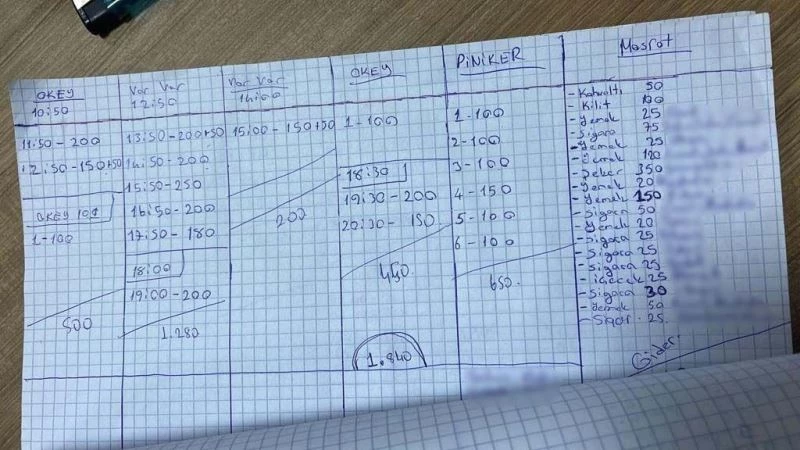 OKEY
10:50
11:50-200
12:50-150+50
OKEY 101
1-100
500
Var Var
12:50
13:50-200+50
14:50-200
15:50-250
16:50-200
17:50-180
18:00
19:00-200
1.280
Var Var
14:00
15:00-150+50
200
OKEY
1-100
18:30
19:30-200
20:30-150
450
1.840
PiNiKER
1-100
2-100
3-100
4-150
5-100
6-100
650.
Masrat
- Kahvaltı 50
- Kilit 100
- Yemek 25
- Sigara 75
- Yemek 25
- Yemek 120
- Şeker 350
- Yemek 20
- Yemek 150
- Sigara 50
- Yemek 20
- Sigara 25
- Sigara 25
- Sigara 25
- içecek 25
- Sigara 30
- Yemek 50
- Sigar. 25.
Gider.